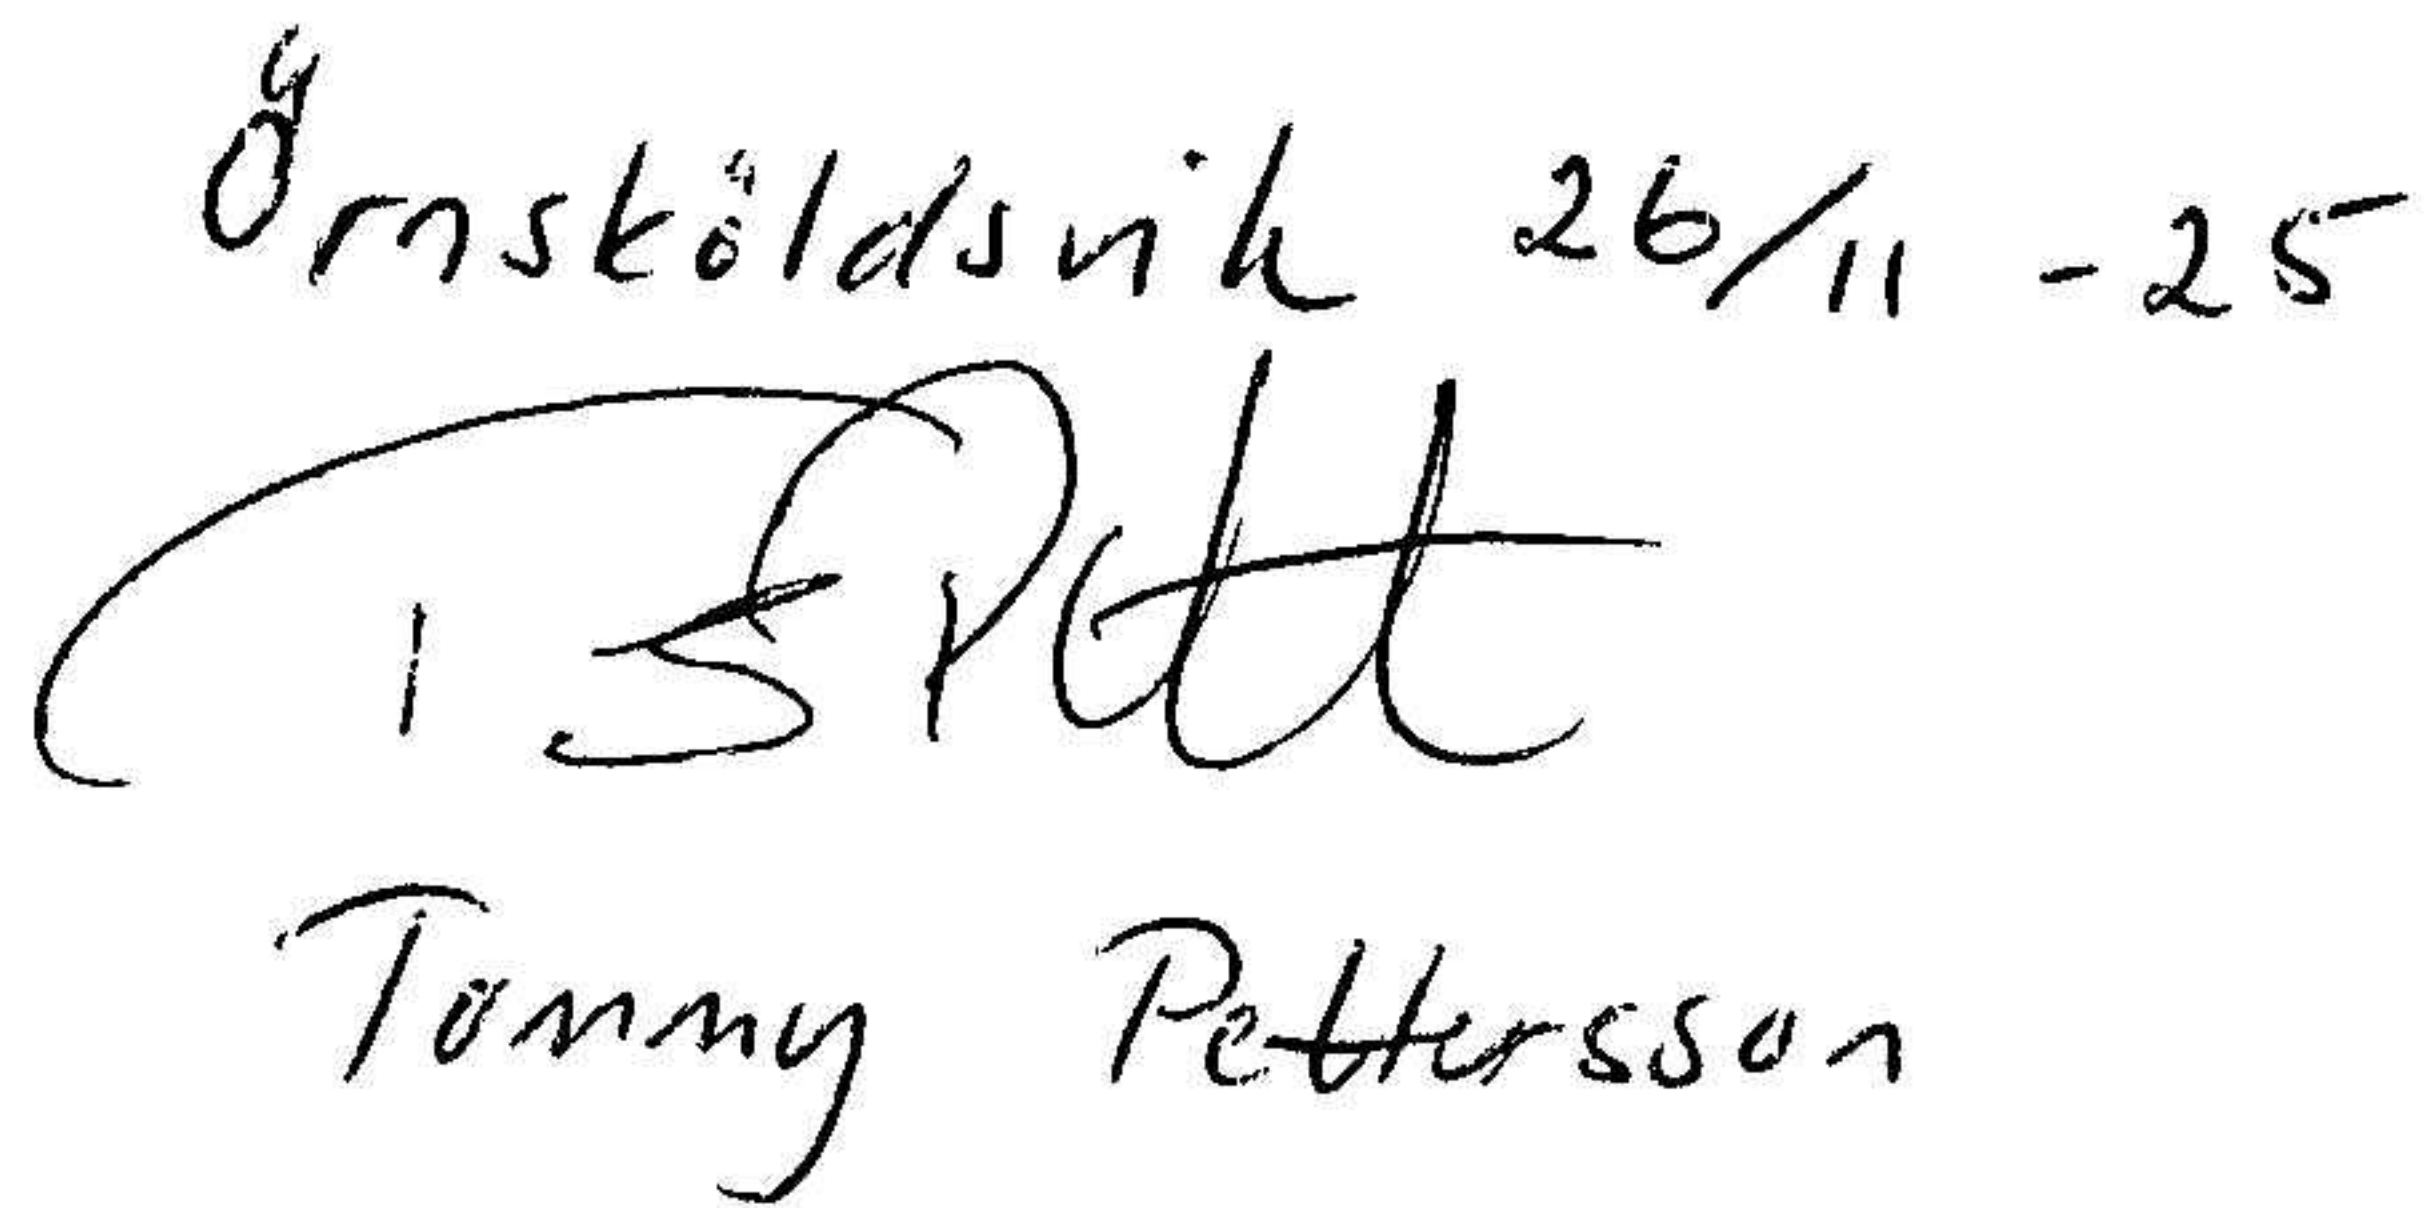 Örnsköldsvik 26/11 - 25
Tommy Pettersson